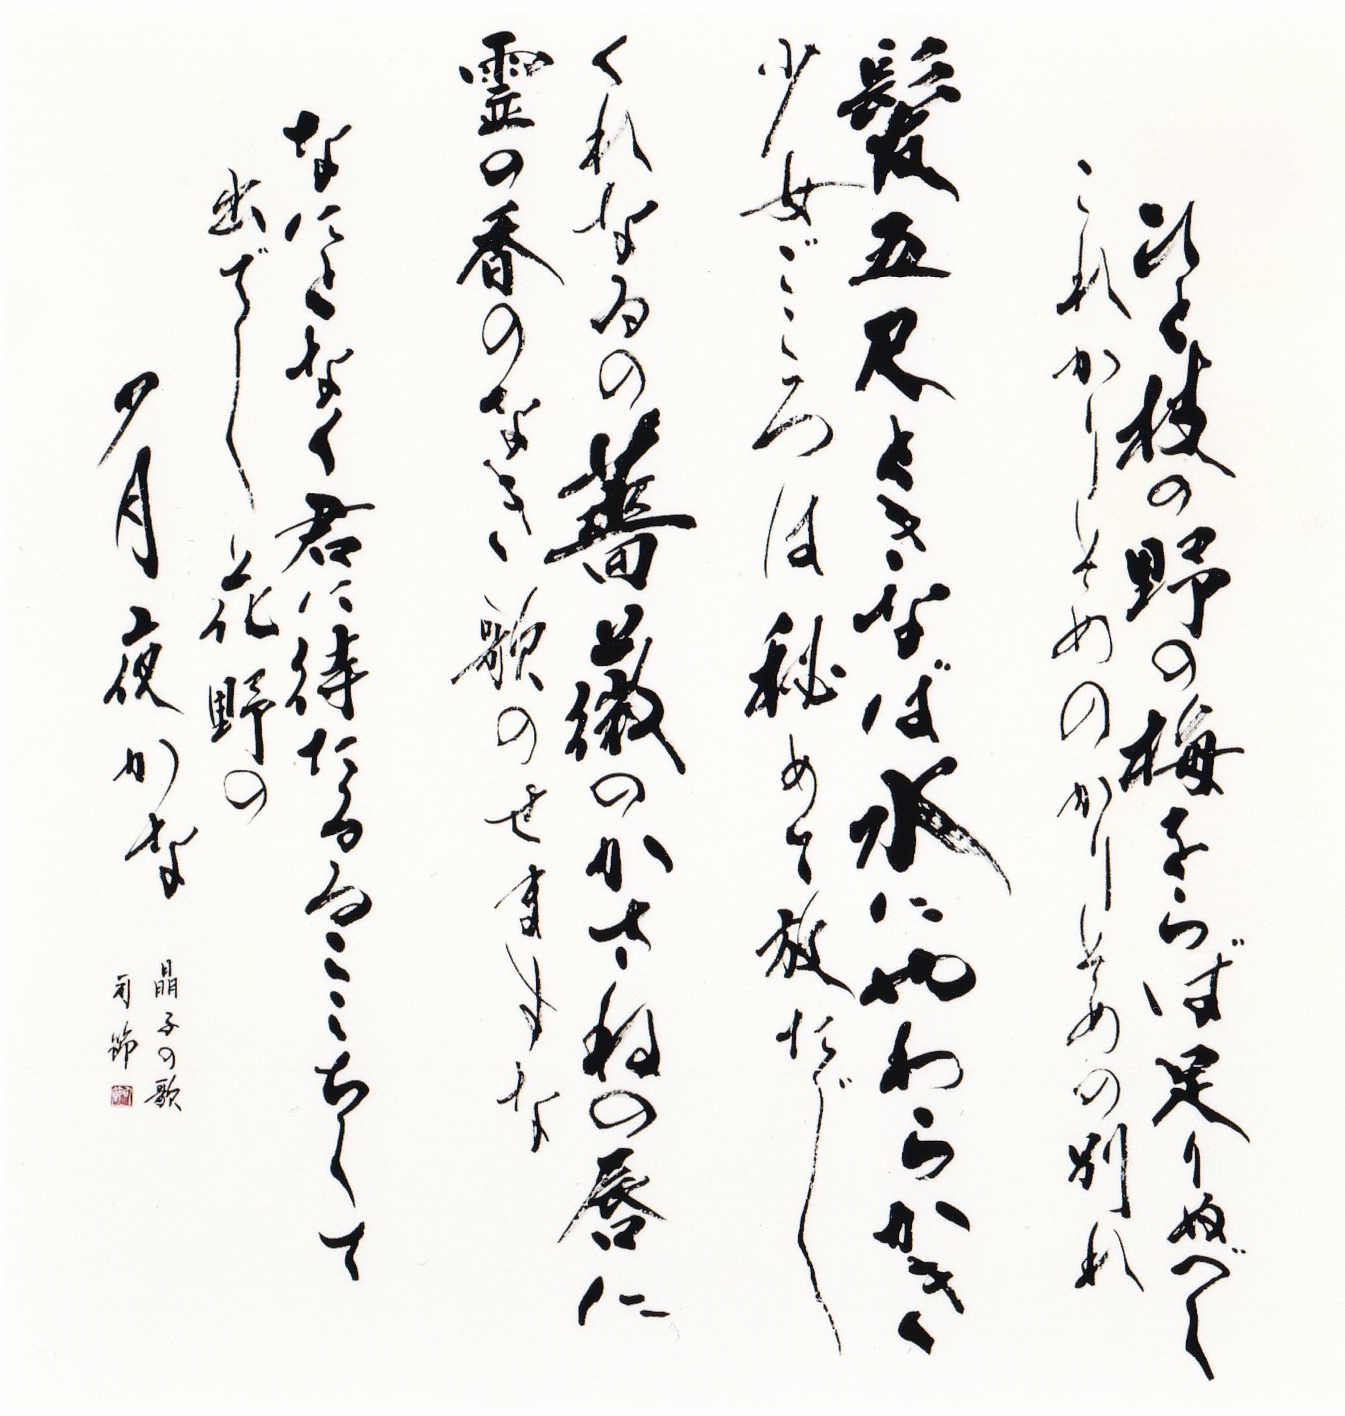 ひと枝の野の梅をらば足りぬべし
これかりそめのかりそめの別れ
髪五尺ときなば水にやわらかき
少女ごころは秘めて放たじ
くれなゐの薔薇のかさねの唇に
霊の香のなき歌のせますな
なにとなく君に待たるるここちして
出でし花野の
夕月夜かな
晶子の歌
司節